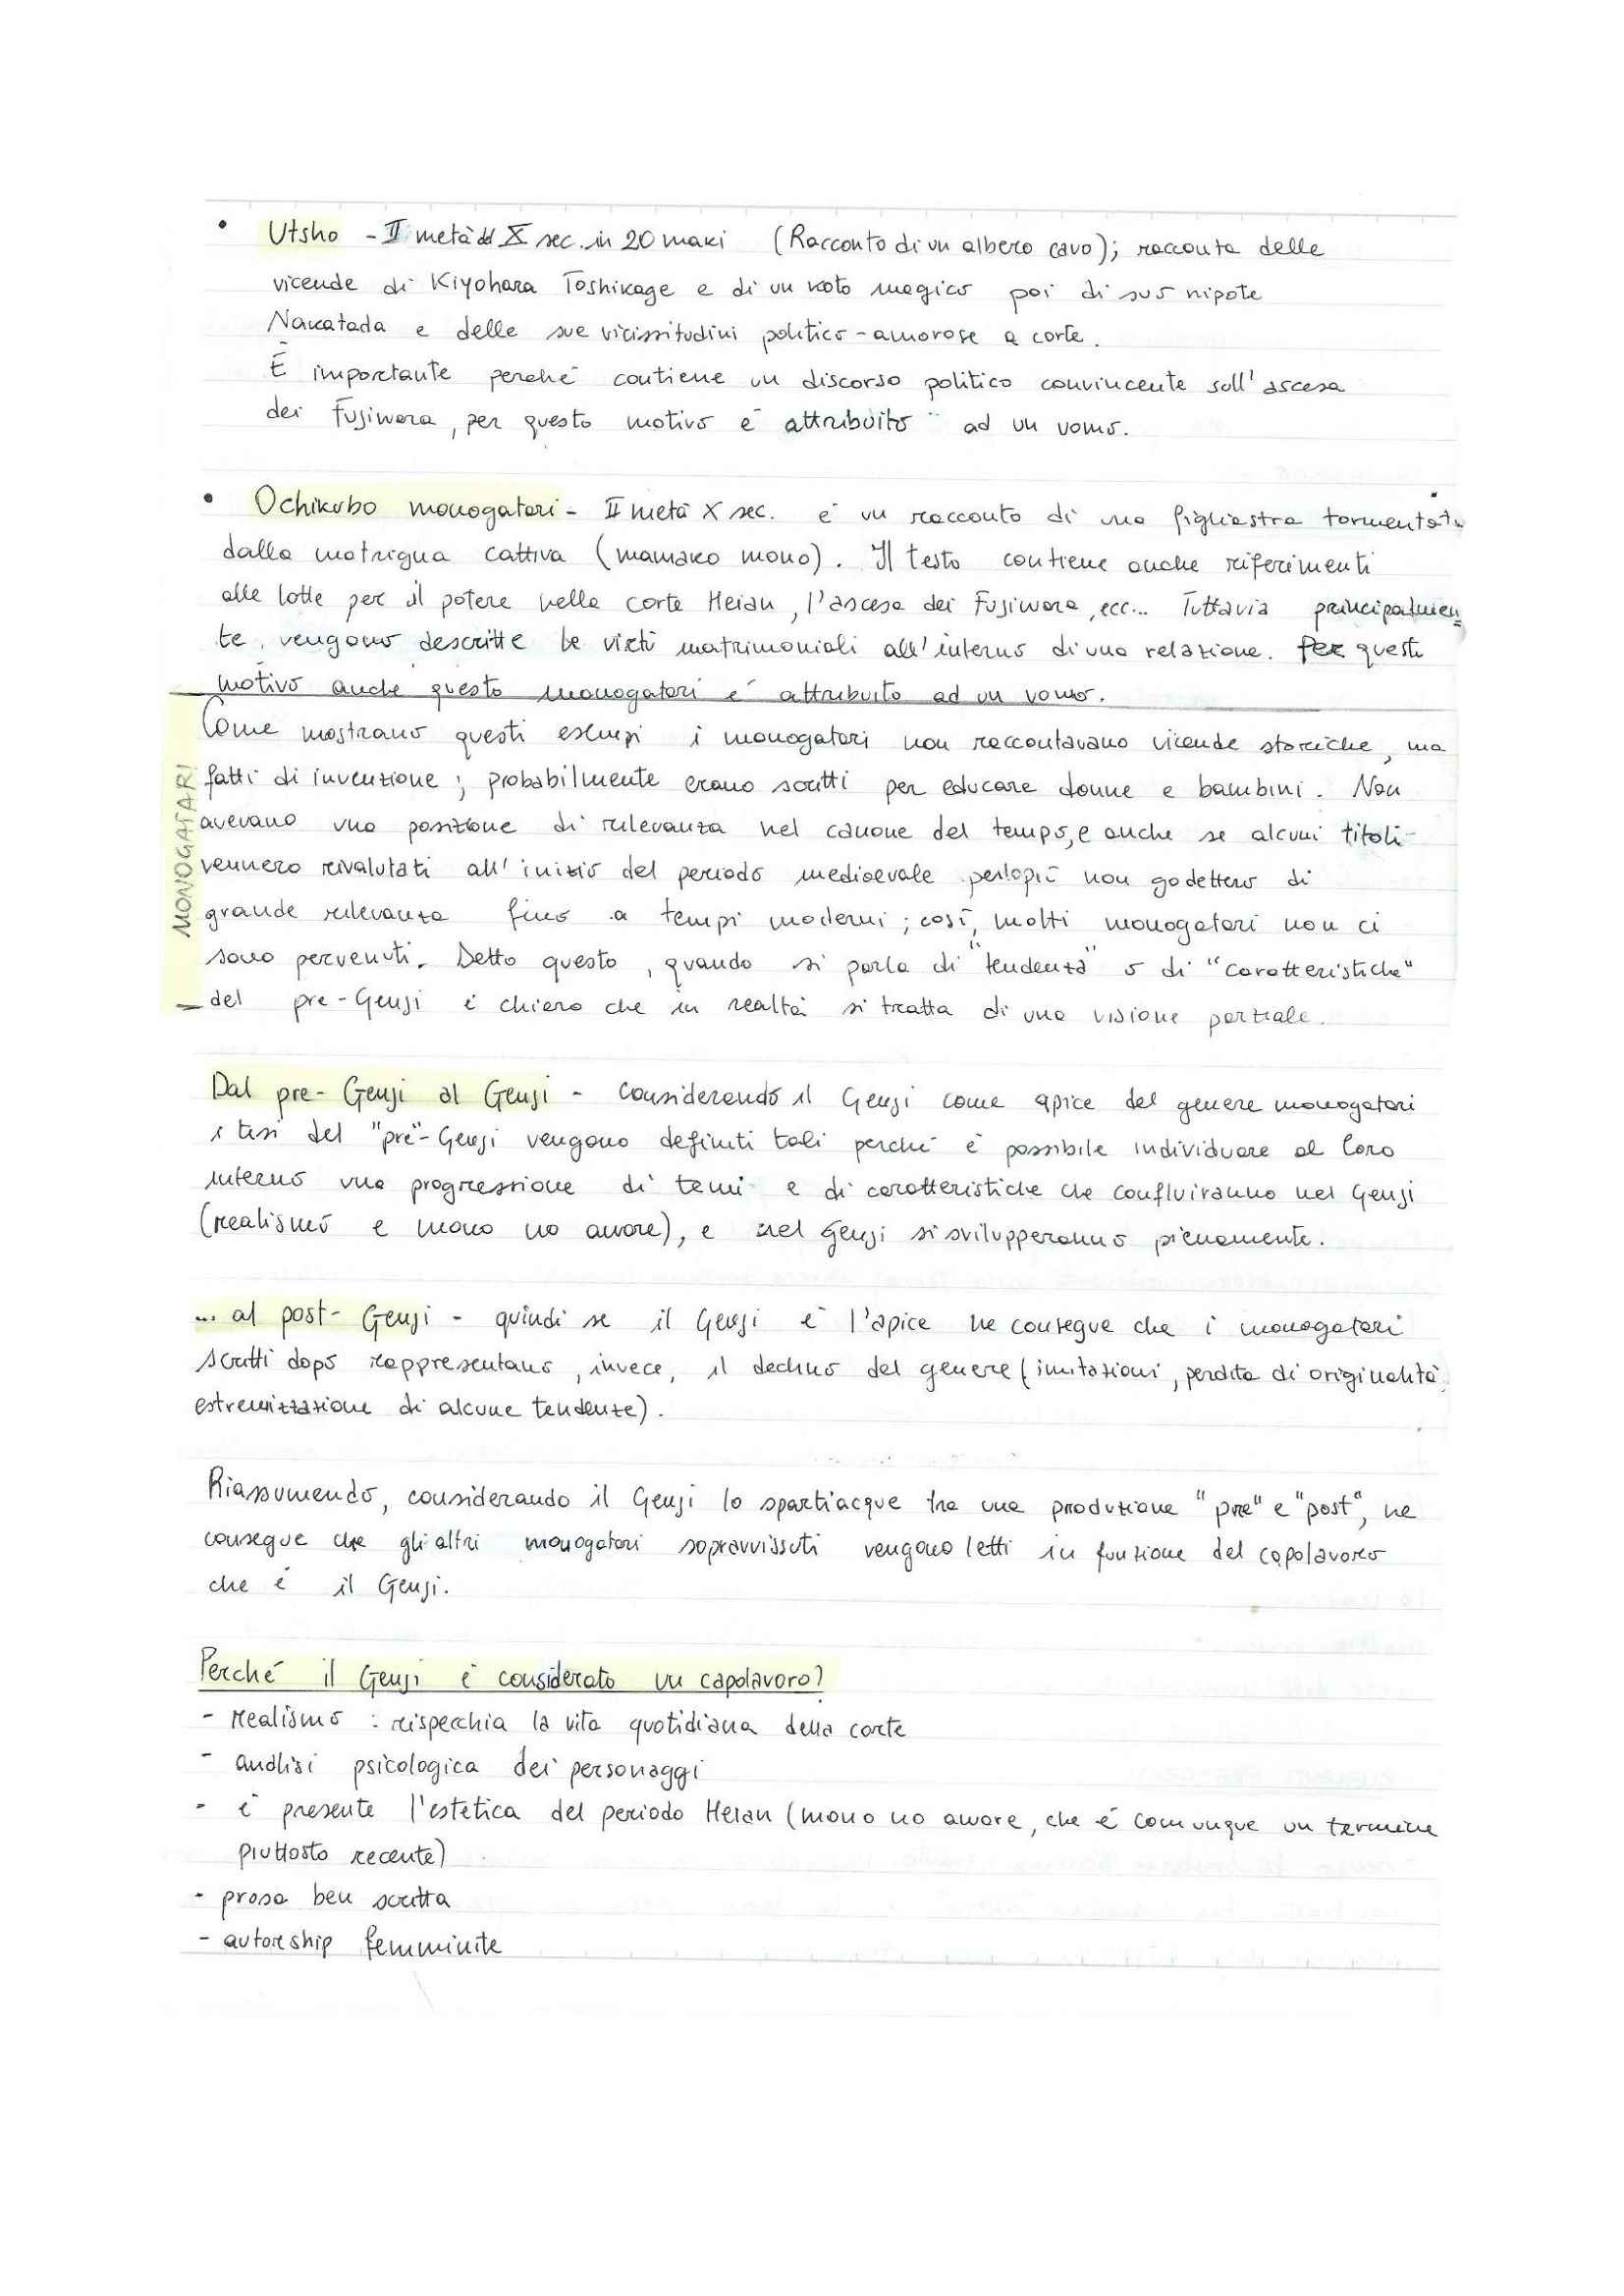 • Utsho - II metà del X sec. in 20 maki (Racconto di un albero cavo); racconta delle
vicende di Kiyohara Toshikage e di un koto magico poi di suo nipote
Nakatada e delle sue vicissitudini politico-amorose a corte.
È importante perché contiene un discorso politico convincente sull'ascesa
dei Fujiwara, per questo motivo è attribuito ad un uomo.
• Ochikubo monogatari - II metà X sec. è un racconto di una figliastra tormentata
dalla matrigna cattiva (mamako mono). Il testo contiene anche riferimenti
alle lotte per il potere nella corte Heian, l'ascesa dei Fujiwara, ecc... Tuttavia principalmen
te, vengono descritte le virtù matrimoniali all'interno di una relazione. Per questo
motivo anche questo monogatari è attribuito ad un uomo.
MONOGATARI
Come mostrano questi esempi i monogatari non raccontavano vicende storiche, ma
fatti di invenzione; probabilmente erano scritti per educare donne e bambini. Non
avevano una posizione di rilevanza nel canone del tempo, e anche se alcuni titoli
vennero rivalutati all'inizio del periodo medioevale perlopiù non godettero di
grande rilevanza fino a tempi moderni; così, molti monogatari non ci
sono pervenuti. Detto questo, quando si parla di "tendenza" o di "caratteristiche"
del pre-Genji è chiaro che in realtà si tratta di una visione parziale.
Dal pre-Genji al Genji - considerando il Genji come apice del genere monogatari
i tesi del "pre"-Genji vengono definiti tali perché è possibile individuare al loro
interno una progressione di temi e di caratteristiche che confluiranno nel Genji
(realismo e mono no aware), e nel Genji si svilupperanno pienamente.
... al post-Genji - quindi se il Genji è l'apice ne consegue che i monogatari
scritti dopo rappresentano, invece, il declino del genere (imitazioni, perdita di originalità,
estremizzazione di alcune tendenze).
Riassumendo, considerando il Genji lo spartiacque tra una produzione "pre" e "post", ne
consegue che gli altri monogatari sopravvissuti vengono letti in funzione del capolavoro
che è il Genji.
Perché il Genji è considerato un capolavoro?
- realismo : rispecchia la vita quotidiana della corte
- analisi psicologica dei personaggi
- è presente l'estetica del periodo Heian (mono no aware, che è comunque un termine
piuttosto recente)
- prosa ben scritta
- autorship femminile